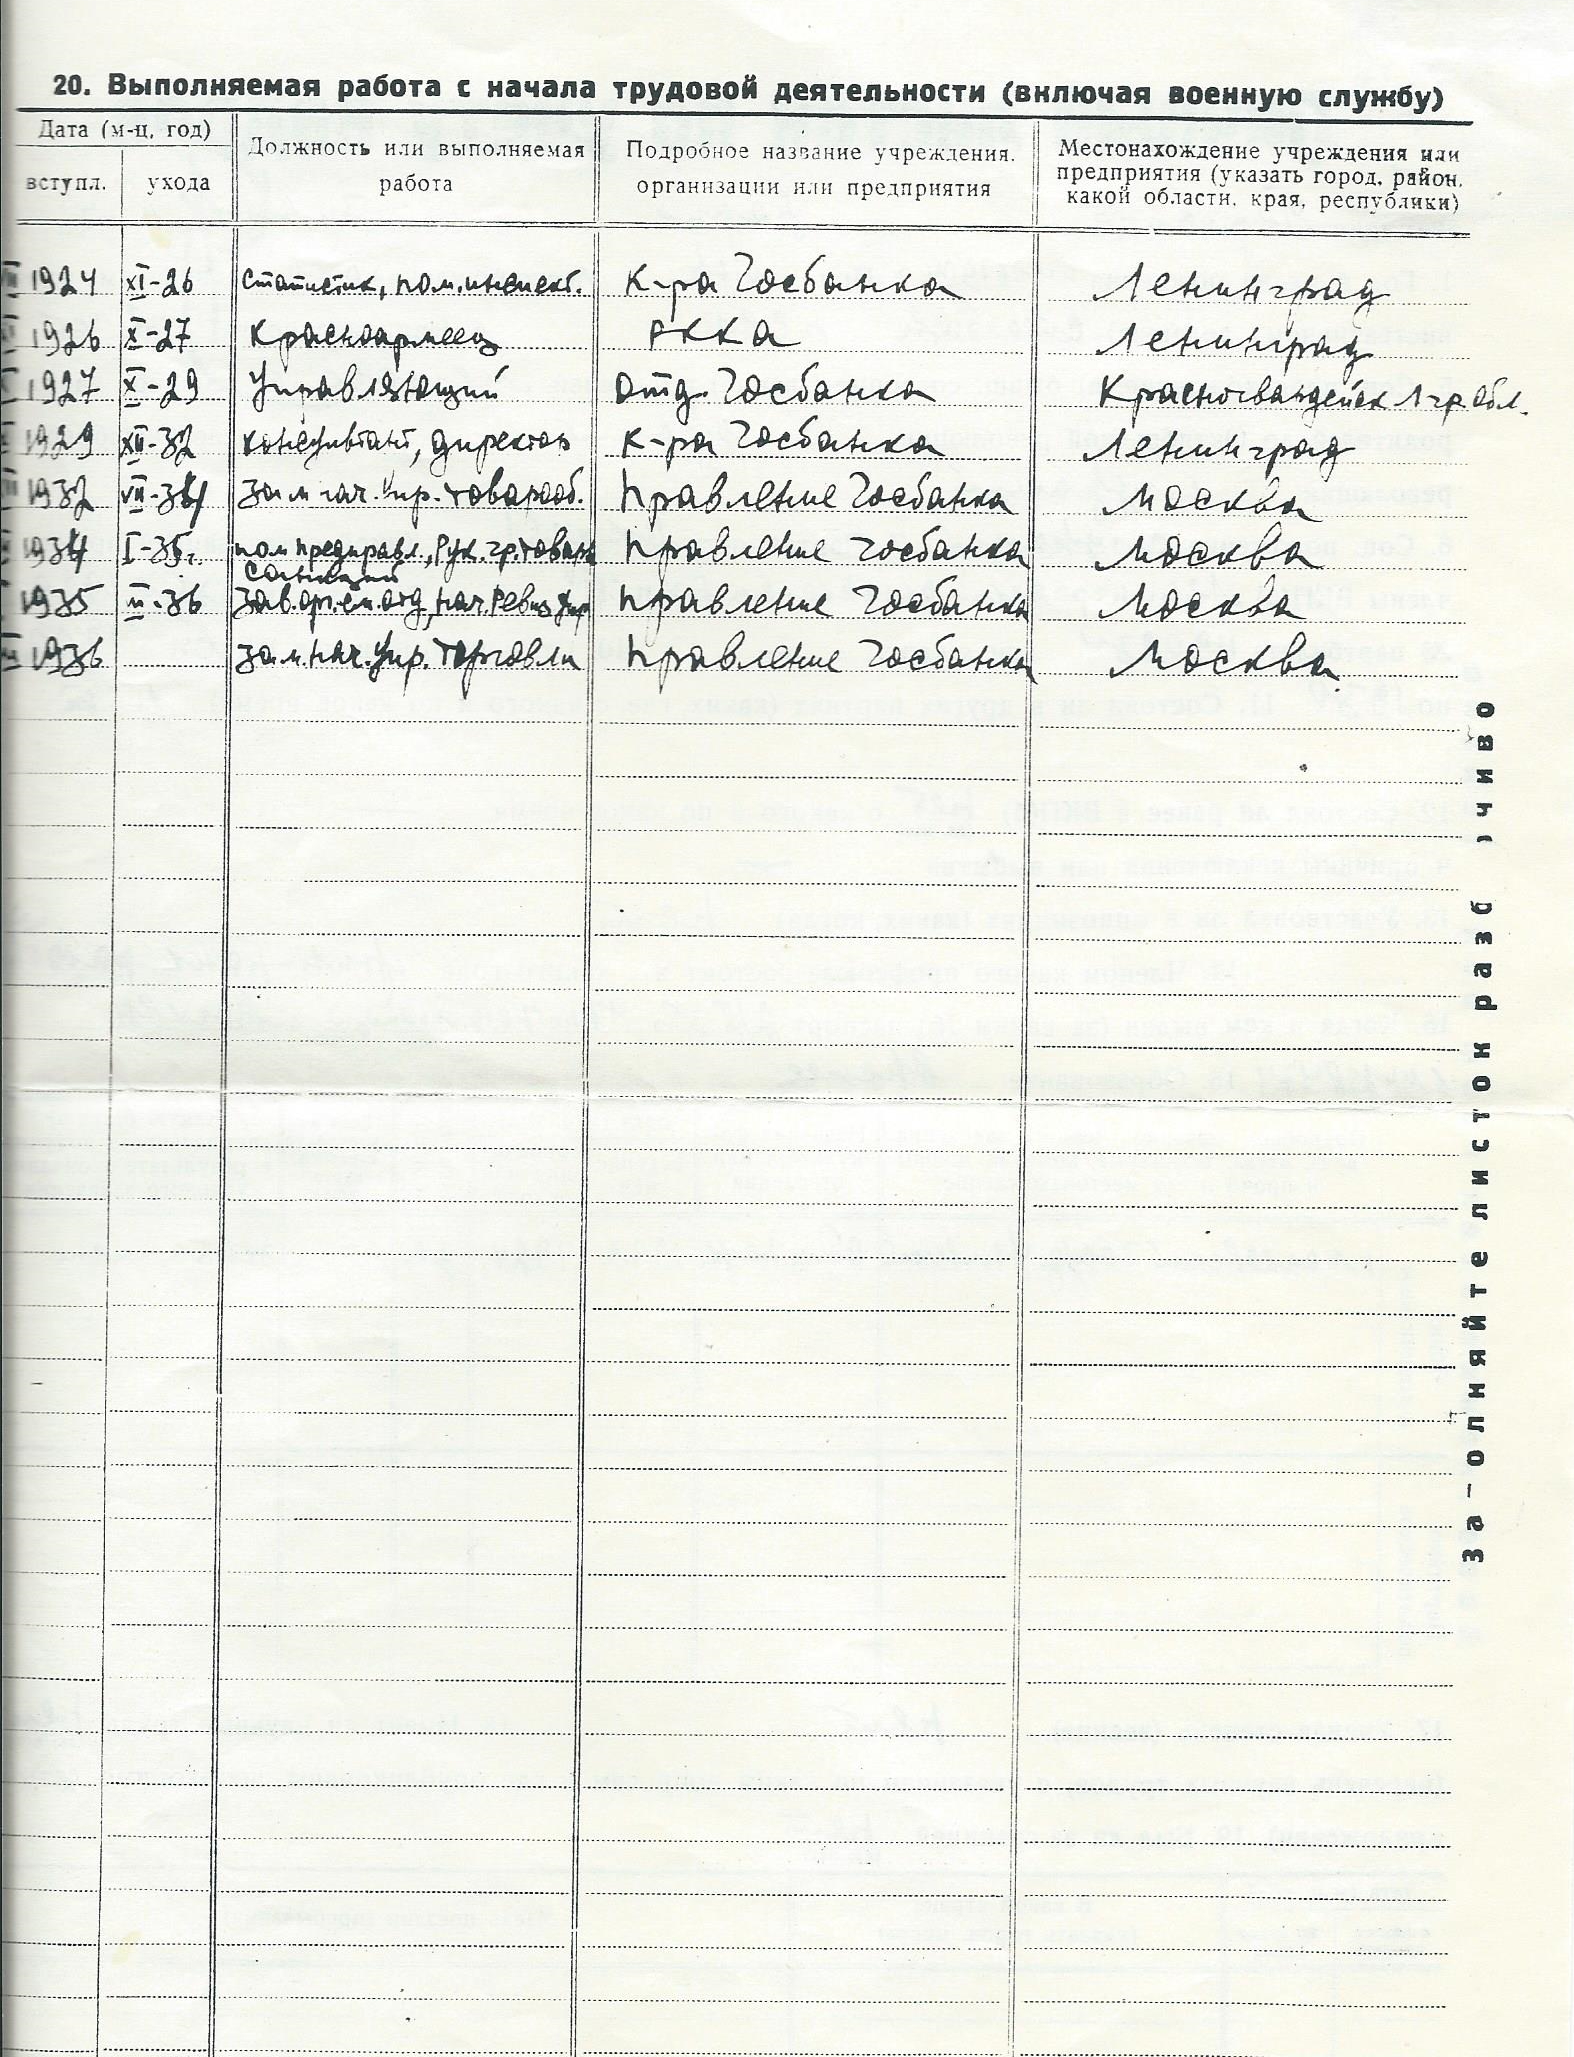 20. Выполняемая работа с начала трудовой деятельности (включая военную службу)
Дата (м-ц, год)
вступл. ухода
Должность или выполняемая
работа
Подробное название учреждения,
организации или предприятия
Местонахождение учреждения или
предприятия (указать город, район,
какой области, края, республики)
1924 XI-26 статистик, пом.инспект. К-ра Госбанка Ленинград
1926 X-27 Красноармеец РККА Ленинград
1927 X-29 Управляющий отд. Госбанка Красногвардейск Л-гр. обл.
1929 XII-32 консультант, директор К-ра Госбанка Ленинград
1932 VII-34 зам нач. Упр. товарооб. Правление Госбанка Москва
1934 I-35г. пом предправл., Рук. гр. Правление Госбанка Москва
1935 II-36 зав. отд, нач. Ревиз Упр Правление Госбанка Москва
1936 зам. нач. Упр. Торговли Правление Госбанка Москва
За-олняйте листок разб чиво